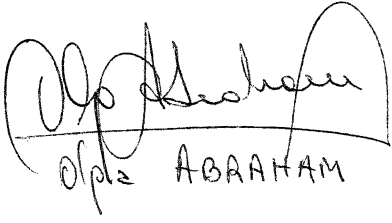 Olga Abraham
Olga ABRAHAM